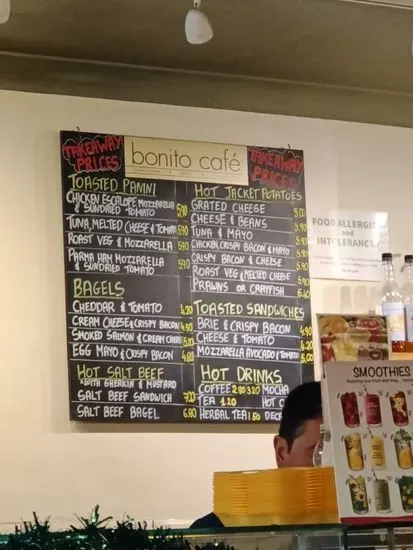 TAKEAWAY
PRICES
bonito café
TAKEAWAY
PRICES
TOASTED PANINI
CHICKEN ESCALOPE MOZZARELLA
& SUNDRIED TOMATO 5.90
TUNA, MELTED CHEESE & TOMATO 5.90
ROAST VEG & MOZZARELLA 5.90
PARMA HAM MOZZARELLA
& SUNDRIED TOMATO 5.90
BAGELS
CHEDDAR & TOMATO 4.20
CREAM CHEESE & CRISPY BACON 4.50
SMOKED SALMON & CREAM CHEESE 5.20
EGG MAYO & CRISPY BACON 4.80
HOT SALT BEEF
WITH GHERKIN & MUSTARD
SALT BEEF SANDWICH 7.00
SALT BEEF BAGEL 6.80
HOT JACKET POTATOES
GRATED CHEESE 5.00
CHEESE & BEANS 5.90
TUNA & MAYO 5.90
CHICKEN, CRISPY BACON & MAYO 5.90
CRISPY BACON & CHEESE 5.90
ROAST VEG & MELTED CHEESE 5.90
PRAWNS OR CRAYFISH 6.40
TOASTED SANDWICHES
BRIE & CRISPY BACON 4.90
CHEESE & TOMATO
MOZZARELLA AVOCADO & TOMATO 5.00
HOT DRINKS
COFFEE 2.80 3.20 MOCHA
TEA 1.20 HOT
HERBAL TEA 1.50
FOOD ALLERGIES
and
INTOLERANCE
SMOOTHIES